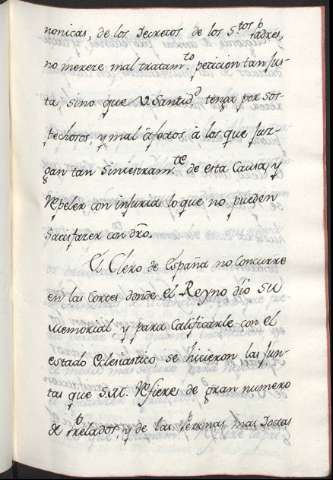 nonicas, de los Decretos de los S.tos Padres,
no merece mal tratam.to peticion tan jus-
ta, sino que V. Santid.d tenga por sos-
pechosos, y mal afectos, à los que juz-
gan tan siniestram.te de esta Causa, y
repeler con injuria lo que no pueden
satisfazer con dro.
El Clero de España no concurre
en las Cortes donde el Reyno diò su
memorial y para calificarle con el
estado eclesiastico se hicieron las Jun-
tas que S.M. refiere de gran numero
de Prelados, y de las personas mas Doctas